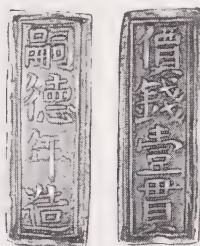 嗣德年造
價錢壹貫